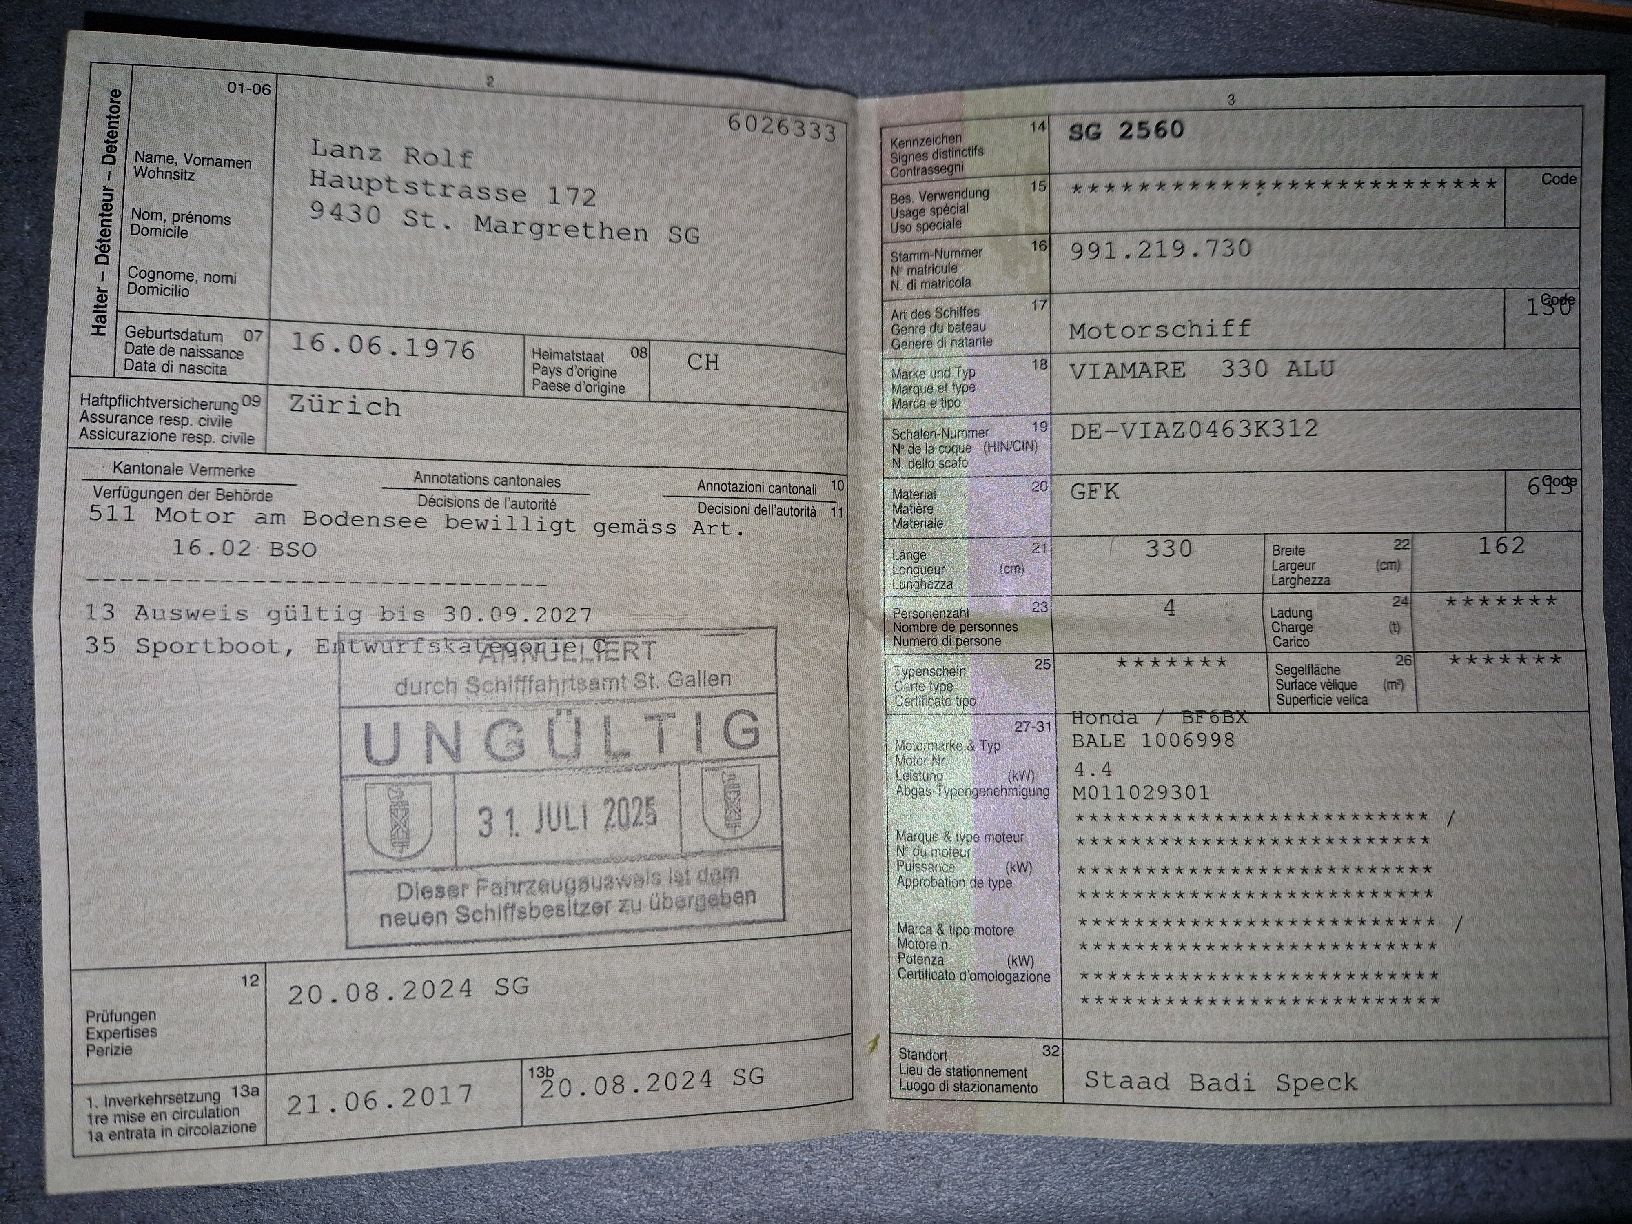 2
01-06
6026333
Halter – Détenteur – Detentore
Name, Vornamen
Wohnsitz
Nom, prénoms
Domicile
Cognome, nomi
Domicilio
Lanz Rolf
Hauptstrasse 172
9430 St. Margrethen SG
Geburtsdatum 07
Date de naissance
Data di nascita
16.06.1976
Heimatstaat 08
Pays d'origine
Paese d'origine
CH
Haftpflichtversicherung 09
Assurance resp. civile
Assicurazione resp. civile
Zürich
Kantonale Vermerke Annotations cantonales Annotazioni cantonali 10
Verfügungen der Behörde Décisions de l'autorité Decisioni dell'autorità 11
511 Motor am Bodensee bewilligt gemäss Art.
16.02 BSO
13 Ausweis gültig bis 30.09.2027
35 Sportboot, Entwurfskategorie C
ANNULLIERT
durch Schifffahrtsamt St. Gallen
UNGÜLTIG
31. JULI 2025
Dieser Fahrzeugausweis ist dem
neuen Schiffsbesitzer zu übergeben
12
Prüfungen
Expertises
Perizie
20.08.2024 SG
1. Inverkehrsetzung 13a
1re mise en circulation
1a entrata in circolazione
21.06.2017
13b
20.08.2024 SG
3
Kennzeichen 14
Signes distinctifs
Contrassegni
SG 2560
Bes. Verwendung 15
Usage spécial
Uso speciale
**************************
Code
Stamm-Nummer 16
N° matricule
N. di matricola
991.219.730
Art des Schiffes 17
Genre du bateau
Genere di natante
Motorschiff
Code
130
Marke und Typ 18
Marque et type
Marca e tipo
VIAMARE 330 ALU
Schalen-Nummer 19
N° de la coque (HIN/CIN)
N. dello scafo
DE-VIAZ0463K312
Material 20
Matière
Materiale
GFK
Code
Länge 21
Longueur (cm)
Lunghezza
330
Breite 22
Largeur (cm)
Larghezza
162
Personenzahl 23
Nombre de personnes
Numero di persone
4
Ladung 24
Charge (t)
Carico
*******
Typenschein 25
Carte type
Certificato tipo
*******
Segelfläche 26
Surface vélique (m²)
Superficie velica
*******
27-31
Motormarke & Typ
Motor Nr.
Leistung (kW)
Abgas-Typengenehmigung
Honda / BF6BX
BALE 1006998
4.4
M011029301
Marque & type moteur
N° du moteur
Puissance (kW)
Approbation de type
************************* /
*************************
*************************
*************************
Marca & tipo motore
Motore n.
Potenza (kW)
Certificato d'omologazione
************************* /
*************************
*************************
*************************
Standort 32
Lieu de stationnement
Luogo di stazionamento
Staad Badi Speck